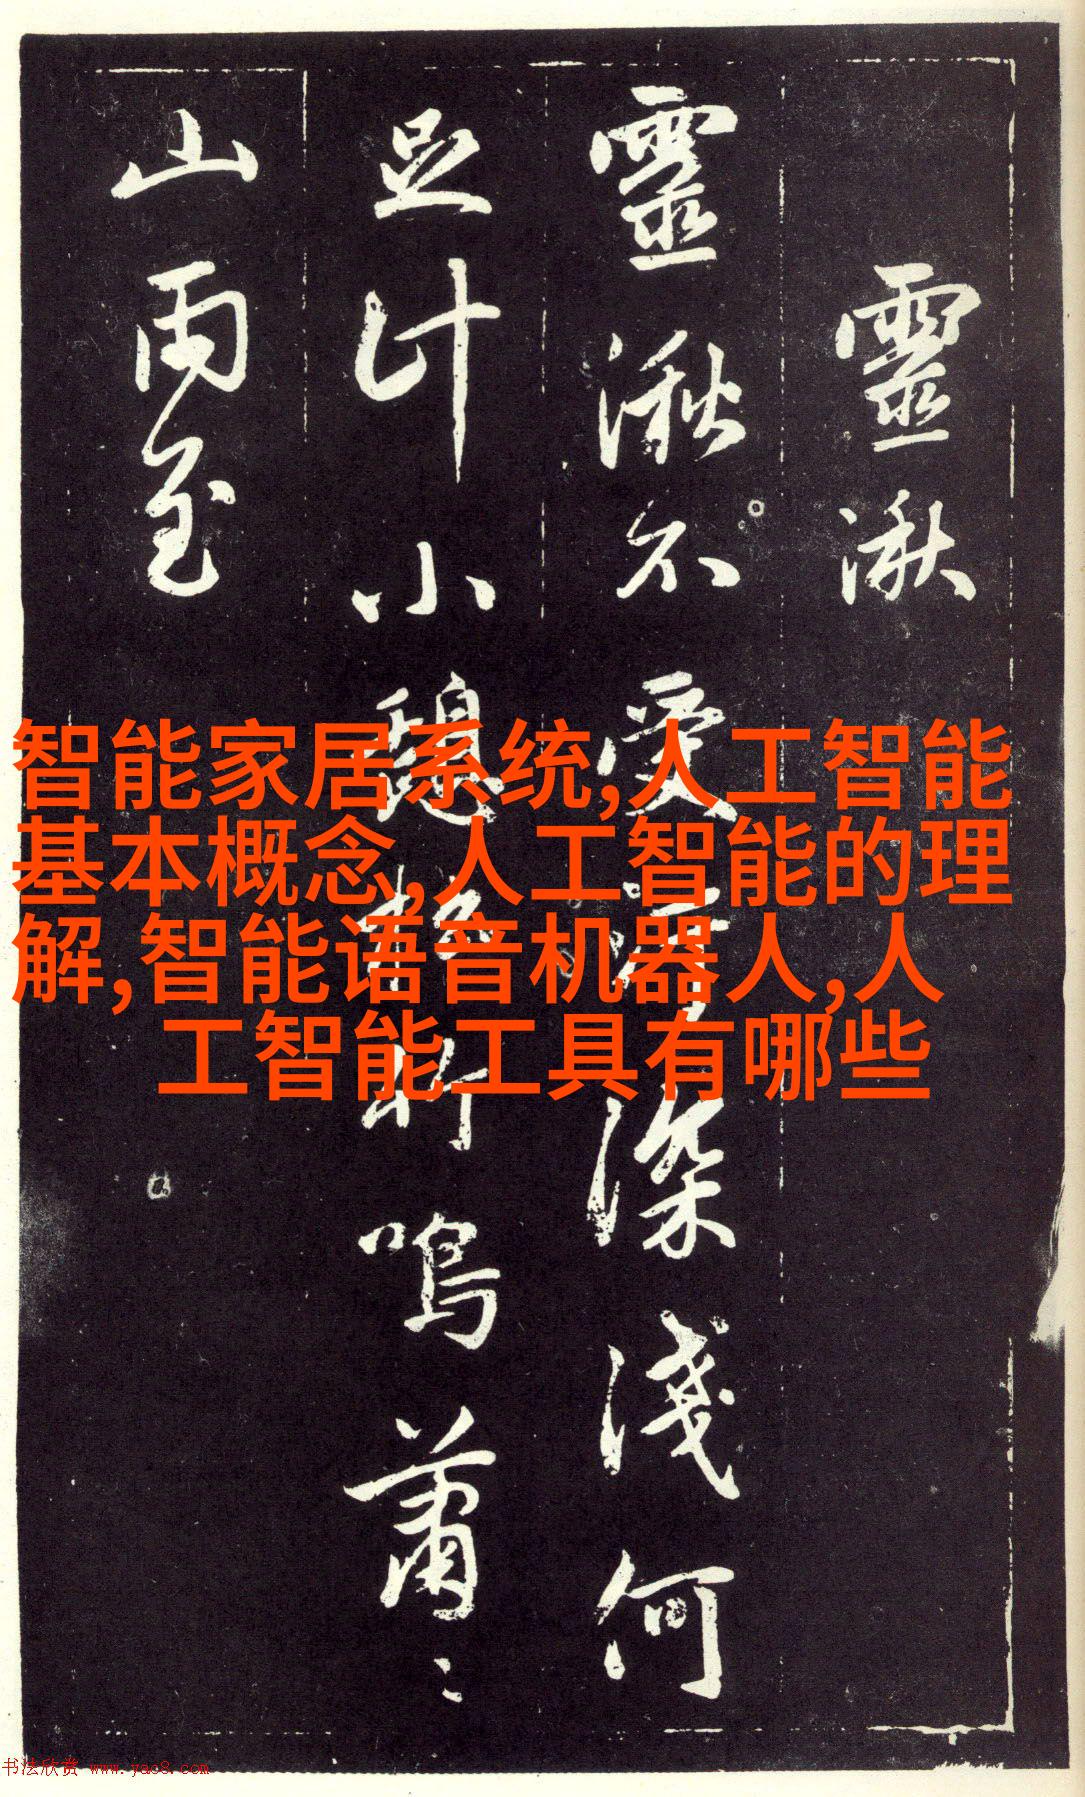 靈湫
靈湫不受深淺何
足计小憩松竹鳴蕭〻
山雨至
智能家居系统,人工智能
基本概念,人工智能的理
解,智能语音机器人,人
工智能工具有哪些
书法欣赏 www.yac8.com